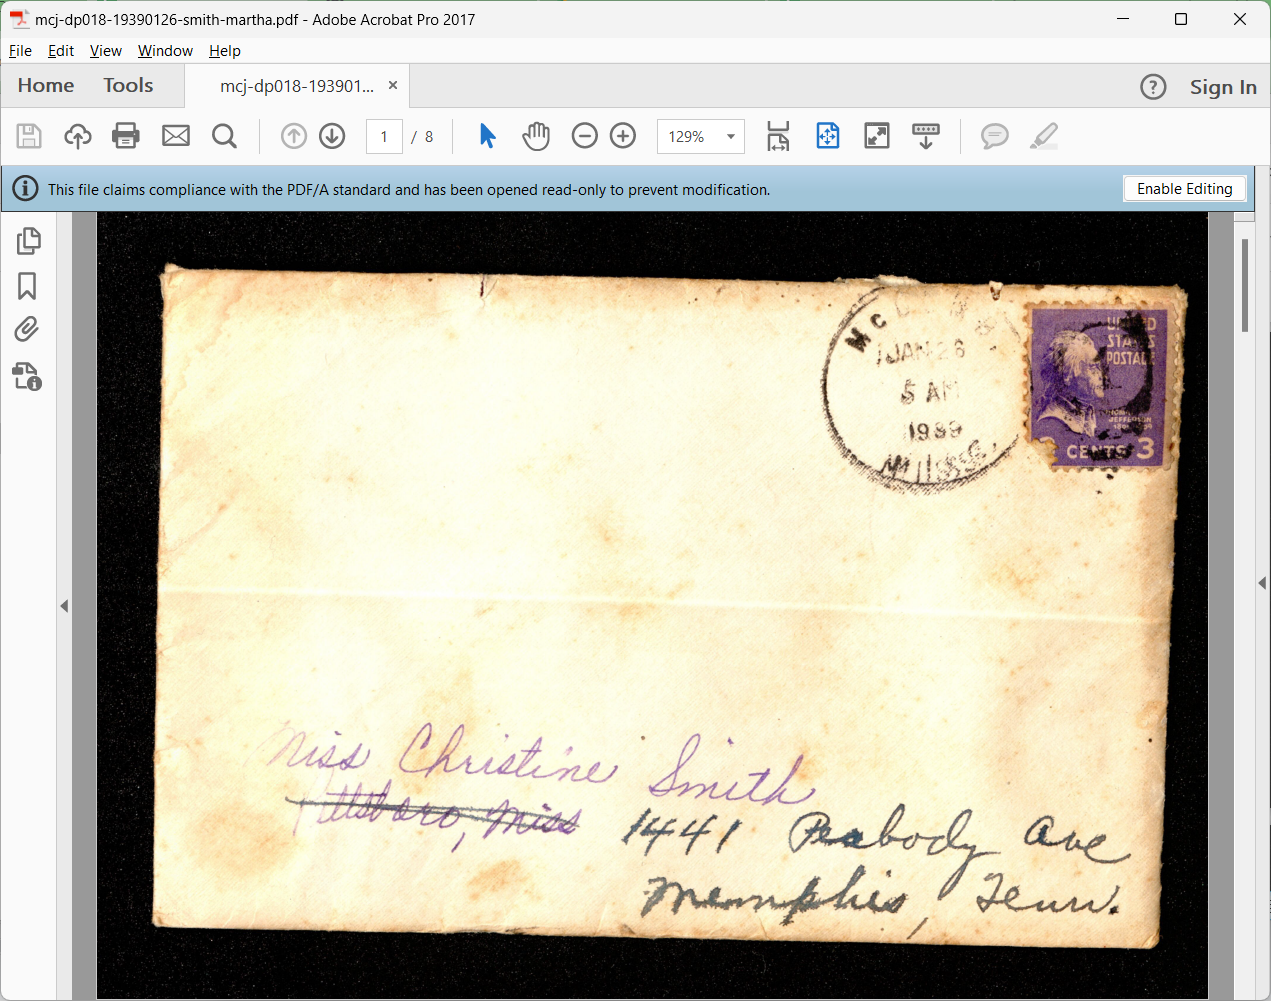 mcj-dp018-19390126-smith-martha.pdf - Adobe Acrobat Pro 2017
File Edit View Window Help
Home Tools mcj-dp018-193901... × ? Sign In
1 / 8 129%
This file claims compliance with the PDF/A standard and has been opened read-only to prevent modification. Enable Editing
JAN 26
5 AM
1939
Miss.
UNITED
STATES
POSTAGE
JEFFERSON
CENTS 3
Miss Christine Smith
Pittsboro, Miss
1441 Peabody Ave
Memphis, Tenn.